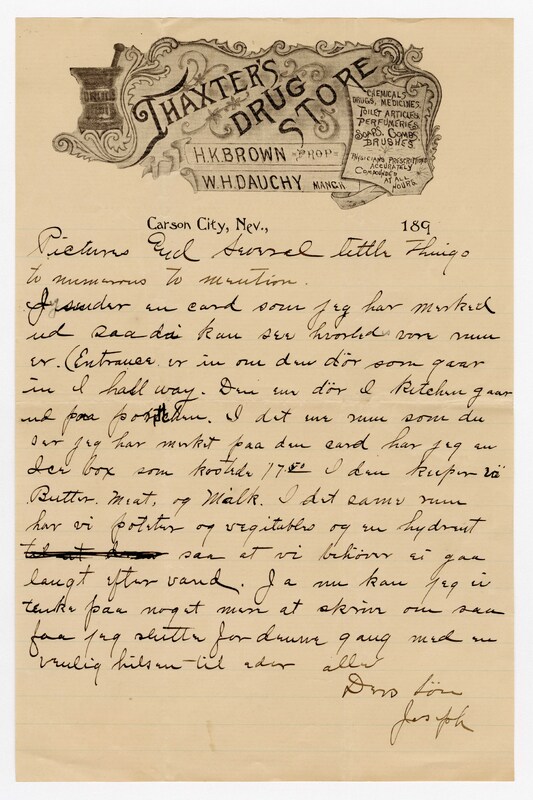 THAXTER'S
DRUG
STORE
H.K. BROWN PROP.
W.H. DAUCHY MANGR
CHEMICALS
DRUGS, MEDICINES,
TOILET ARTICLES
PERFUMERIES,
SOAPS, COMBS
BRUSHES
PHYSICIANS PRESCRIPTIONS
ACCURATELY
COMPOUNDED
AT ALL
HOURS.
Carson City, Nev., 189
Pictures End Several little Things
to numerous to mention.
J sender en card som jeg har merked
ud saa di kan see hvorledes vore rum
er. (Entrance er in om den dör som gaar
in I hall way. Den ene dör I kitchen gaar
ud paa portchen. I det ene rum som du
ser jeg har merket paa den card har jeg en
Ice box som kostede 17 50 I den keeper vi
Butter. Meat, og Malk. I det same rum
har vi poteter og vegitables og en hydrent
saa at vi behöver ei gaa
langt efter vand. Ja nu kan jeg ei
tenke paa noget mere at skrive om saa
faa jeg slutter for denne gang med en
venlig hilsen til eder alle
Deres Sön
Joseph